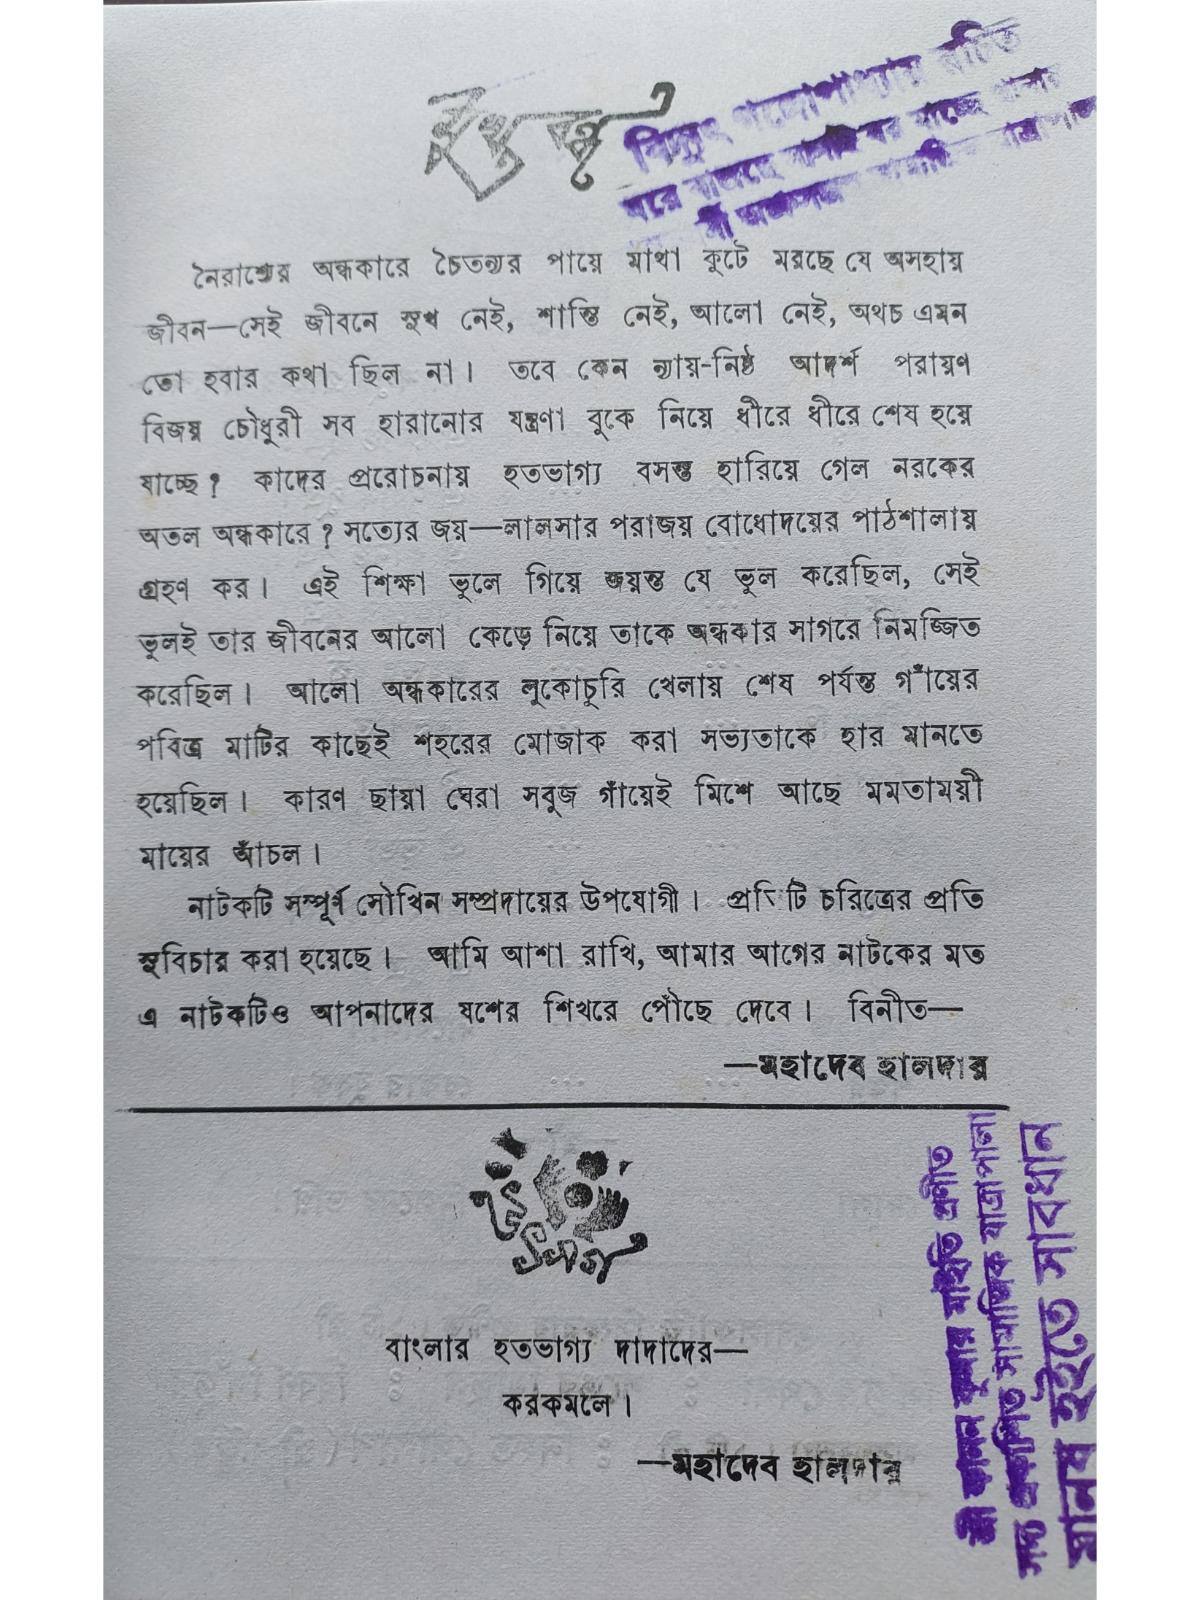 নৈরাশ্যের অন্ধকারে চৈতন্যর পায়ে মাথা কুটে মরছে যে অসহায়
জীবন—সেই জীবনে সুখ নেই, শান্তি নেই, আলো নেই, অথচ এমন
তো হবার কথা ছিল না। তবে কেন ন্যায়-নিষ্ঠ আদর্শ পরায়ণ
বিজয় চৌধুরী সব হারানোর যন্ত্রণা বুকে নিয়ে ধীরে ধীরে শেষ হয়ে
যাচ্ছে? কাদের প্ররোচনায় হতভাগ্য বসন্ত হারিয়ে গেল নরকের
অতল অন্ধকারে? সত্যের জয়—লালসার পরাজয় বোধোদয়ের পাঠশালায়
গ্রহণ কর। এই শিক্ষা ভুলে গিয়ে জয়ন্ত যে ভুল করেছিল, সেই
ভুলই তার জীবনের আলো কেড়ে নিয়ে তাকে অন্ধকার সাগরে নিমজ্জিত
করেছিল। আলো অন্ধকারের লুকোচুরি খেলায় শেষ পর্যন্ত গাঁয়ের
পবিত্র মাটির কাছেই শহরের মোজাক করা সভ্যতাকে হার মানতে
হয়েছিল। কারণ ছায়া ঘেরা সবুজ গাঁয়েই মিশে আছে মমতাময়ী
মায়ের আঁচল।
নাটকটি সম্পূর্ণ সৌখিন সম্প্রদায়ের উপযোগী। প্রতিটি চরিত্রের প্রতি
সুবিচার করা হয়েছে। আমি আশা রাখি, আমার আগের নাটকের মত
এ নাটকটিও আপনাদের যশের শিখরে পৌঁছে দেবে। বিনীত—
—মহাদেব হালদার
উৎসর্গ
বাংলার হতভাগ্য দাদাদের—
করকমলে।
—মহাদেব হালদার
শ্রী কুমার প্রণীত
সদ্য প্রকাশিত সামাজিক যাত্রাপালা
মানুষ হইতে সাবধান